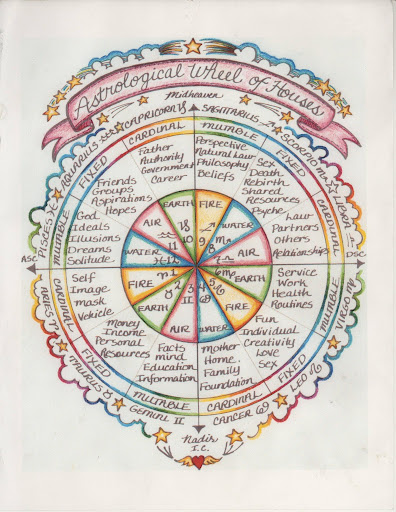 Astrological Wheel of Houses
Midheaven
CAPRICORN ♑
SAGITTARIUS ♐
AQUARIUS ♒
SCORPIO ♏
PISCES ♓
LIBRA ♎
ASC
DSC
ARIES ♈
VIRGO ♍
TAURUS ♉
LEO ♌
GEMINI II
CANCER ♋
CARDINAL
MUTABLE
FIXED
FIXED
MUTABLE
CARDINAL
CARDINAL
MUTABLE
FIXED
FIXED
MUTABLE
CARDINAL
Father
Authority
Government
Career
Perspective
Natural Law
Philosophy
Beliefs
Friends
Groups
Aspirations
Hopes
Sex
Death
Rebirth
Shared
Resources
Psyche
God
Ideals
Illusions
Dreams
Solitude
Law
Partners
Others
Relationships
Self
Image
mask
Vehicle
Service
Work
Health
Routines
Money
Income
Personal
Resources
Fun
Individual
Creativity
Love
Sex
Facts
mind
Education
Information
Mother
Home
Family
Foundation
EARTH
FIRE
AIR
WATER
WATER
AIR
FIRE
EARTH
EARTH
FIRE
AIR
WATER
10
9
11
8
12
7
1
6
2
5
3
4
Nadir
I.C.